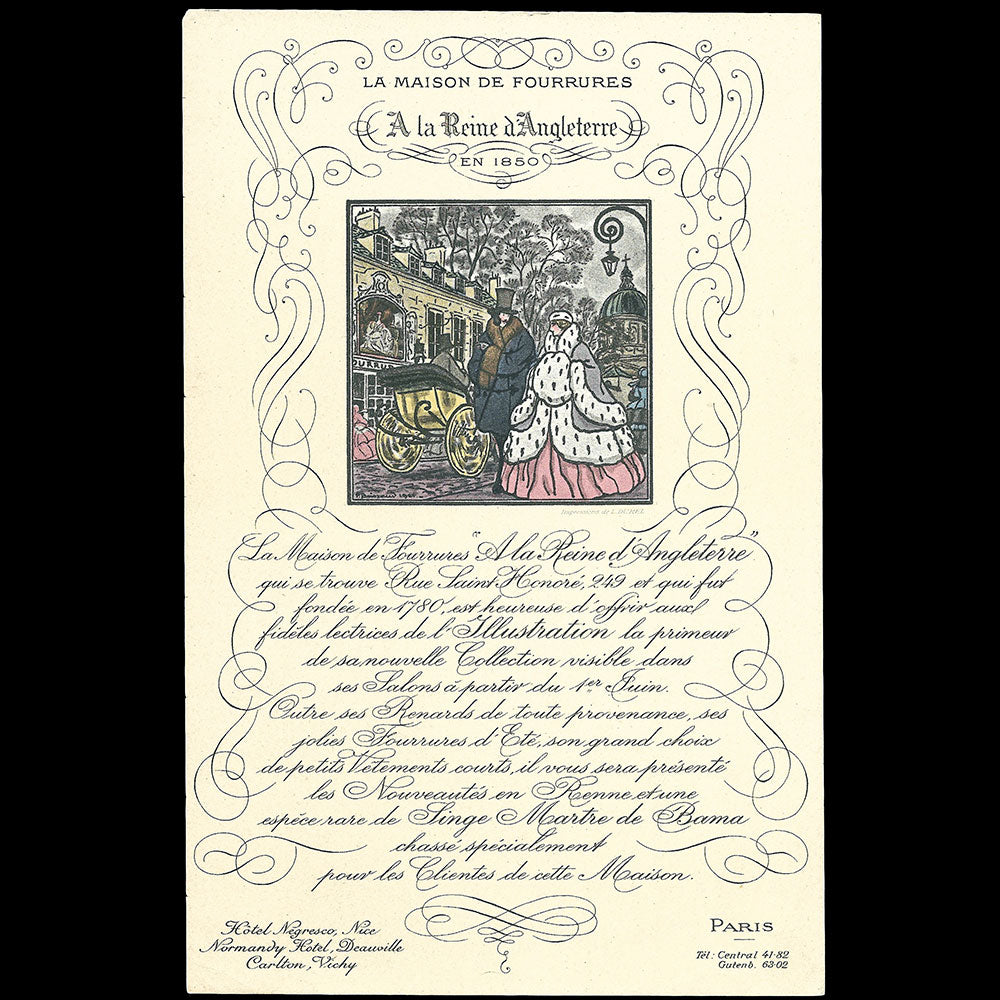 LA MAISON DE FOURRURES
A la Reine d'Angleterre
EN 1850
OURRUR
Impressions de L. DUREL
La Maison de Fourrures "A la Reine d'Angleterre"
qui se trouve Rue Saint Honoré, 249 et qui fut
fondée en 1780, est heureuse d'offrir aux
fidèles lectrices de l'Illustration la primeur
de sa nouvelle Collection visible dans
ses Salons à partir du 1er Juin.
Outre ses Renards de toute provenance, ses
jolies Fourrures d'Eté, son grand choix
de petits Vêtements courts, il vous sera présenté
les Nouveautés en Renne et une
espèce rare de Singe Martre de Bama
chassé spécialement
pour les Clientes de cette Maison.
Hôtel Négresco, Nice
Normandy Hotel, Deauville
Carlton, Vichy
PARIS
Tél: Central 41-82
Gutenb. 63-02